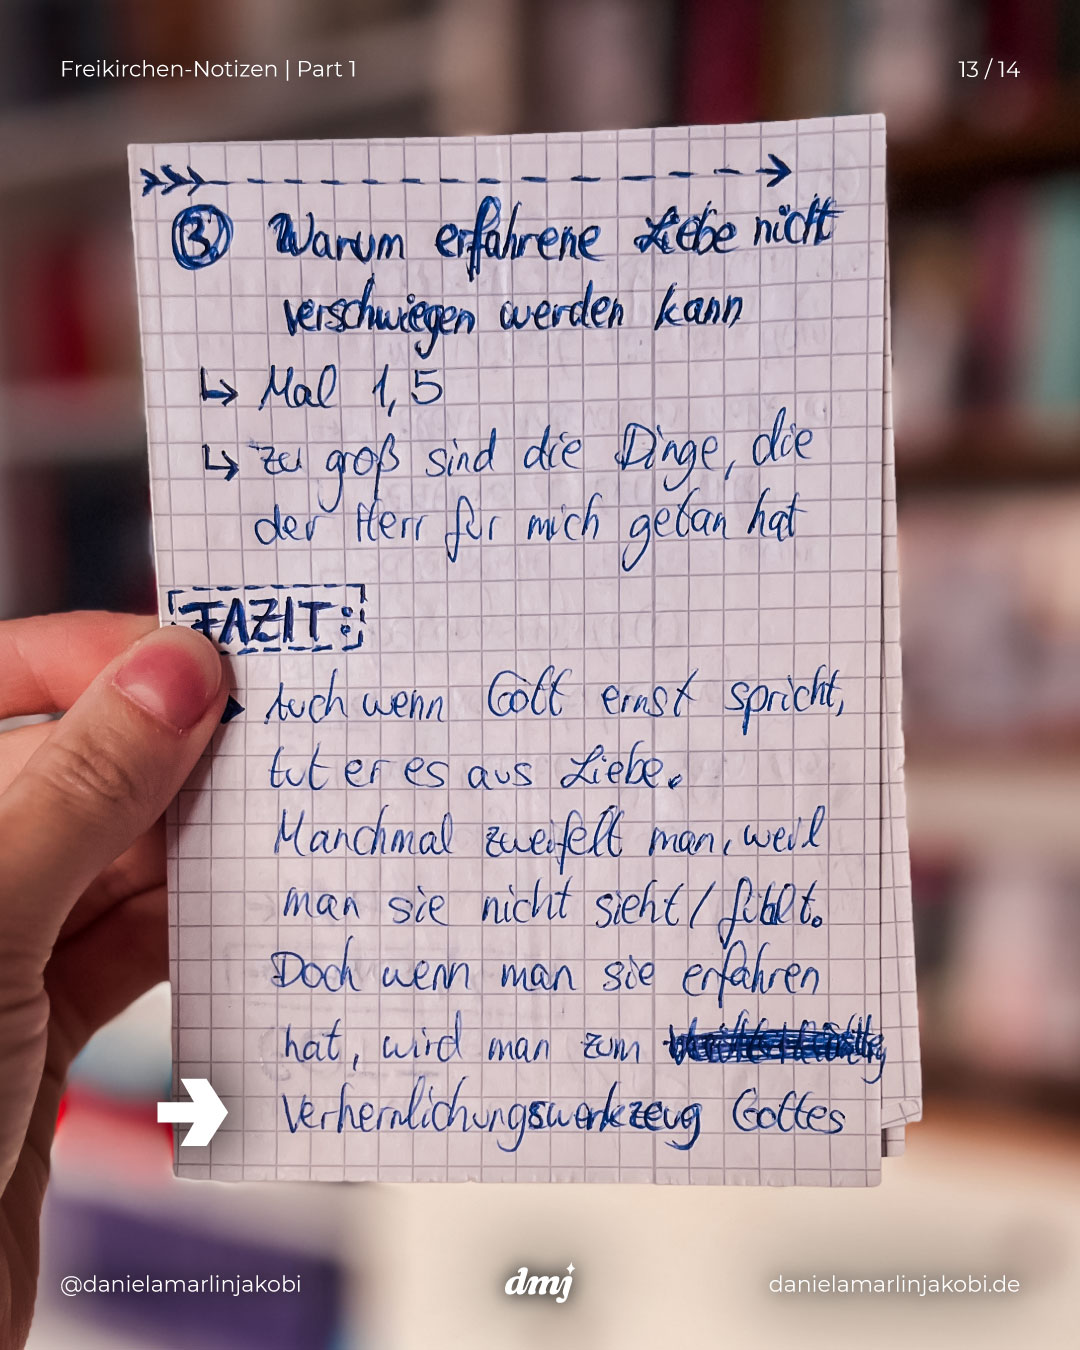 Freikirchen-Notizen | Part 1
13 / 14
3. Warum erfahrene Liebe nicht
verschwiegen werden kann
↳ Mal 1,5
↳ zu groß sind die Dinge, die
der Herr für mich getan hat
FAZIT:
Auch wenn Gott ernst spricht,
tut er es aus Liebe.
Manchmal zweifelt man, weil
man sie nicht sieht / fühlt.
Doch wenn man sie erfahren
hat, wird man zum
Verherrlichungswerkzeug Gottes
@danielamarlinjakobi
dmj
danielamarlinjakobi.de